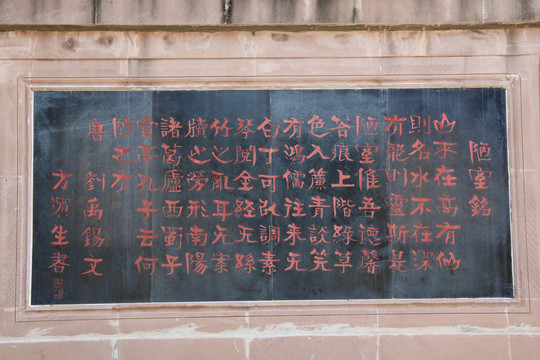 陋室銘
山不在高有仙
則名水不在深
有龍則靈斯是
陋室惟吾德馨
苔痕上階綠草
色入簾青談笑
有鴻儒往來无
白丁可以調素
琴閱金經无絲
竹之亂耳无案
牘之勞形南陽
諸葛廬西蜀子
雲亭孔子云何
陋之有
唐 劉禹錫文
方 生書